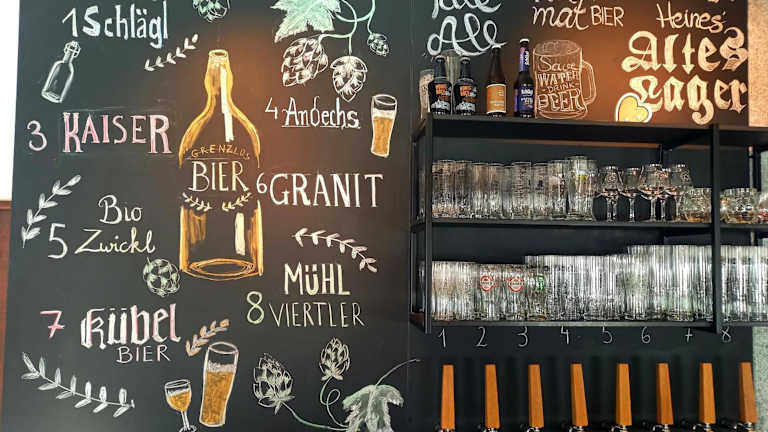 1 Schlägl
3 KAISER
4 Andechs
GRENZLOS
BIER
6 GRANIT
Bio
5 Zwickl
MÜHL
8 VIERTLER
7 Kübel
BIER
Ale
mat BIER
Heines'
Altes
Lager
SAVE
WATER
DRINK
BEER
1 2 3 4 5 6 7 8